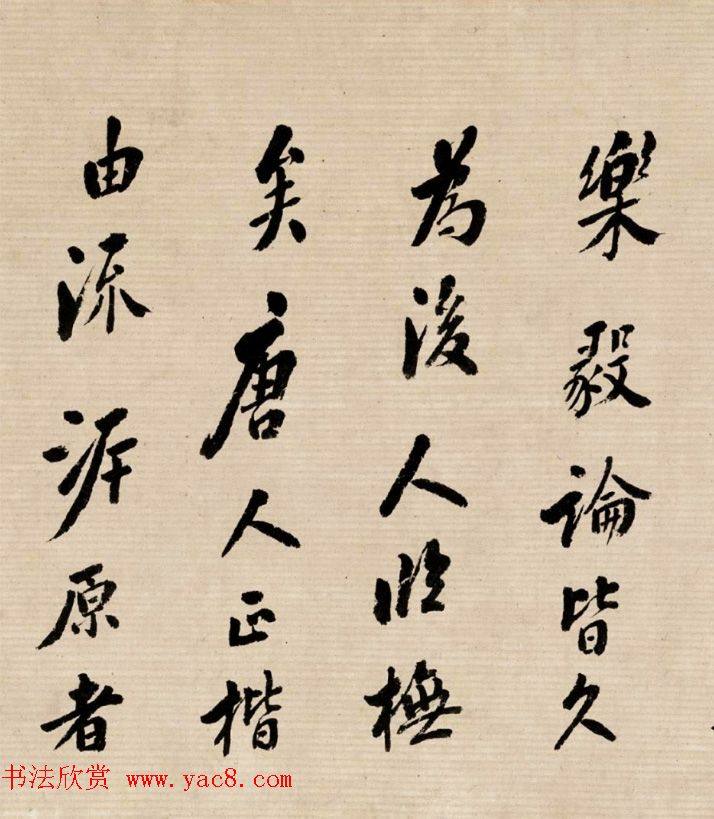 樂毅論皆久
為後人臨橅
矣唐人正楷
由流泝原者
书法欣赏 www.yac8.com